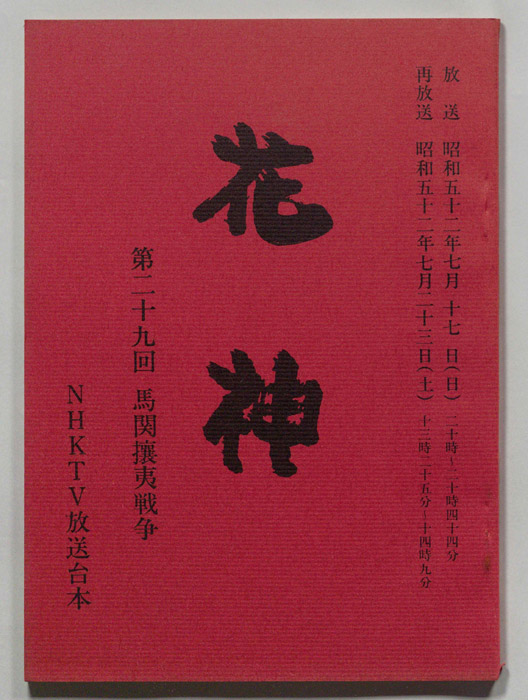 放　送　昭和五十二年七月 十七 日(日)　二十時〜二十時四十四分
再放送　昭和五十二年七月二十三日(土)　十三時二十五分〜十四時九分
花神
第二十九回　馬関攘夷戦争
NHKTV放送台本